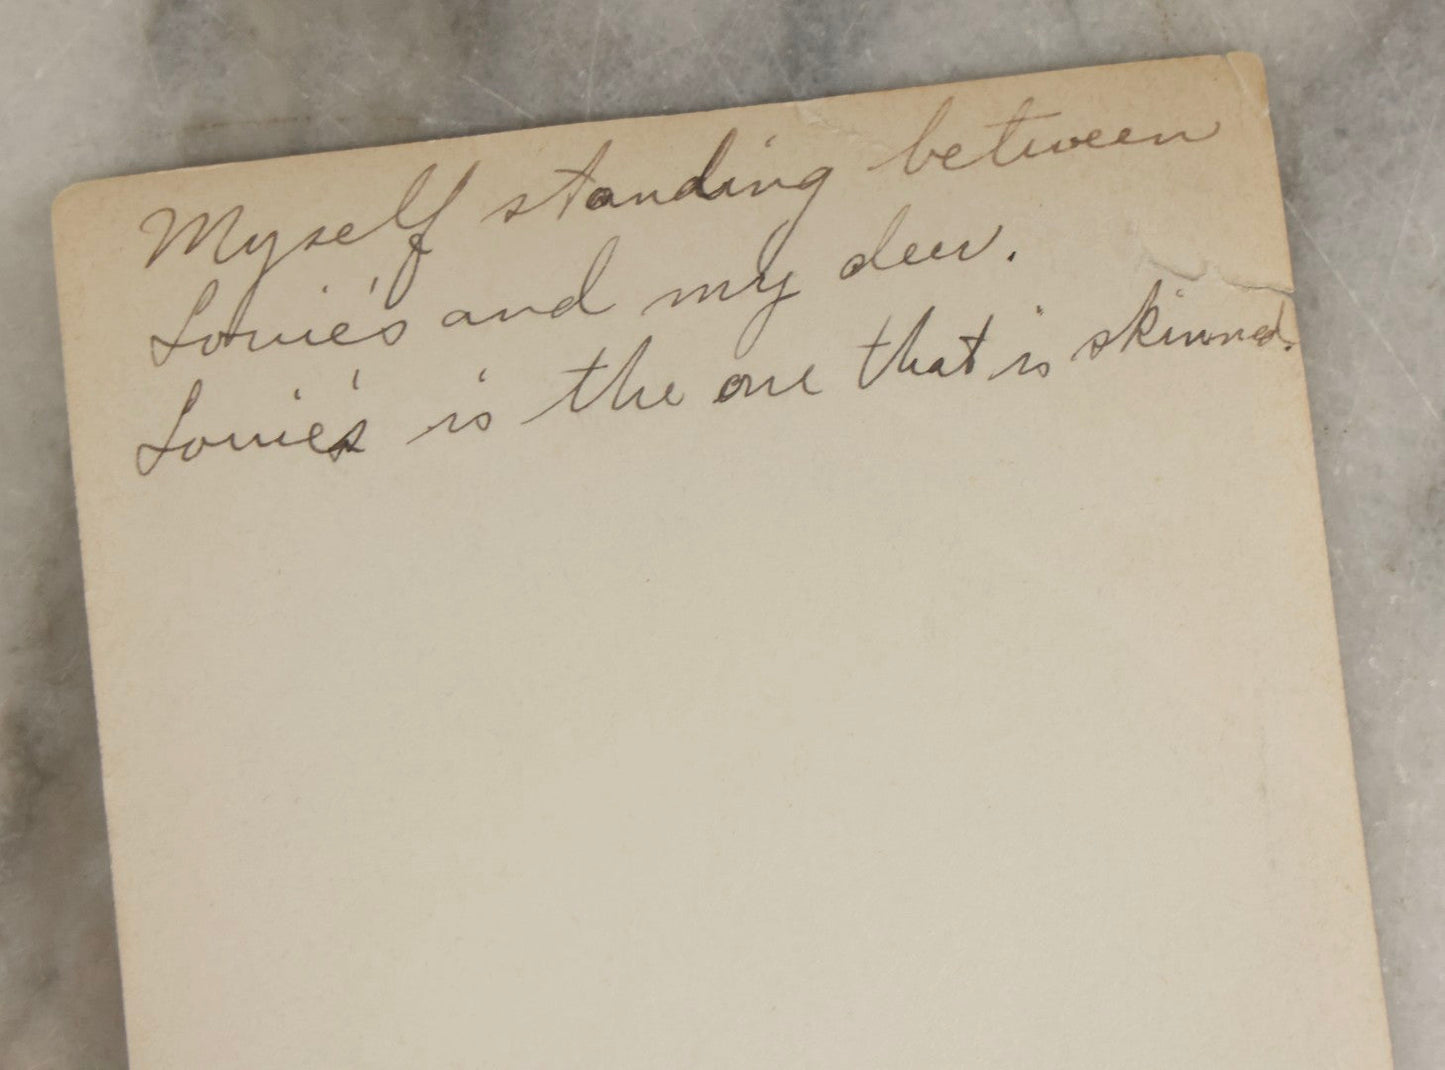 Myself standing between
Louie's and my deer.
Louie's is the one that is skinned.